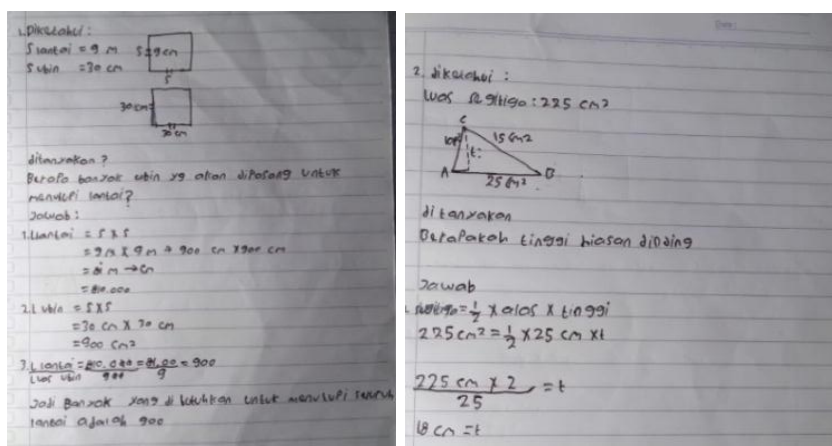 1. Diketahui :
S lantai = 9 m
S ubin = 30 cm
S = 9 cm
S
30 cm
30 cm
ditanyakan ?
Berapa banyak ubin yg akan dipasang untuk
menutupi lantai?
Jawab :
1. L lantai = S x S
= 9 m x 9 m → 900 cm x 900 cm
= m → cm
= 810.000
2. L ubin = S x S
= 30 cm x 30 cm
= 900 cm²
3. L lantai = 810.000 = 81.00 = 900
Luas ubin 900 9
Jadi Banyak yang di butuhkan untuk menutupi seluruh
lantai adalah 900
2. diketahui :
Luas segitiga : 225 cm²
C
15 cm2
t:
A
B
25 cm²
ditanyakan
Berapakah tinggi hiasan dinding
Jawab
L segitiga = 1/2 x alas x tinggi
225 cm² = 1/2 x 25 cm x t
225 cm x 2 = t
25
18 cm = t